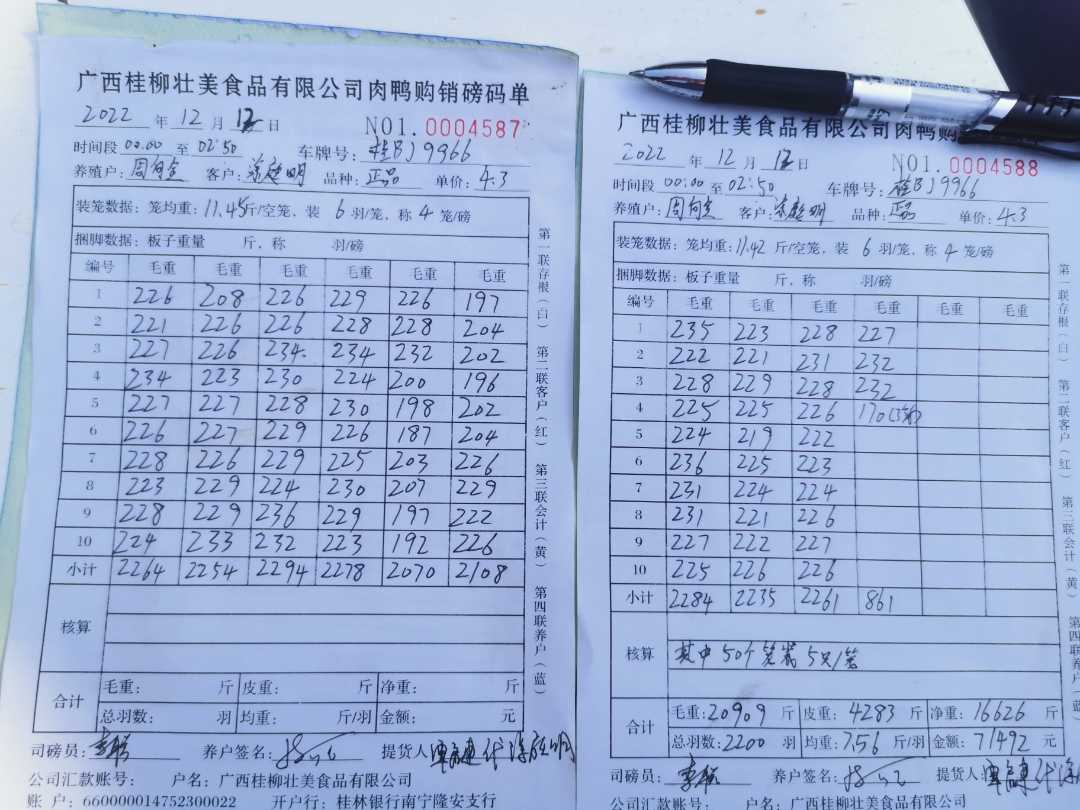 广西桂柳壮美食品有限公司肉鸭购销磅码单
2022 年 12 月 12 日 NO1.0004587
时间段 00:00 至 02:50 车牌号: 桂BJ9966
养殖户: 客户: 品种: 正品 单价: 4.3
装笼数据: 笼均重: 11.45斤/空笼、装 6 羽/笼, 称 4 笼/磅
捆脚数据: 板子重量 斤、称 羽/磅
编号 毛重 毛重 毛重 毛重 毛重 毛重
1 226 208 226 229 226 197
2 221 226 226 228 228 204
3 227 226 234 234 232 202
4 234 223 230 224 200 196
5 227 227 228 230 198 202
6 226 227 229 226 187 204
7 228 226 229 225 203 226
8 223 229 224 230 207 229
9 228 229 236 229 197 222
10 224 233 232 223 192 226
小计 2264 2254 2294 2278 2070 2108
核算
合计 毛重: 斤 皮重: 斤 净重: 斤
总羽数: 羽 均重: 斤/羽 金额: 元
司磅员: 养户签名: 提货人
公司汇款账号: 户名: 广西桂柳壮美食品有限公司
账 户: 660000014752300022 开户行: 桂林银行南宁隆安支行
第一联存根(白) 第二联客户(红) 第三联会计(黄) 第四联养户(蓝)
广西桂柳壮美食品有限公司肉鸭购
2022 年 12 月 12 日 NO1.0004588
时间段 00:00 至 02:50 车牌号: 桂BJ9966
养殖户: 客户: 品种: 正品 单价: 4.3
装笼数据: 笼均重: 11.42 斤/空笼、装 6 羽/笼, 称 4 笼/磅
捆脚数据: 板子重量 斤、称 羽/磅
编号 毛重 毛重 毛重 毛重 毛重 毛重
1 235 223 228 227
2 222 221 231 232
3 228 229 228 232
4 225 225 226 170
5 224 219 222
6 236 225 223
7 231 224 224
8 231 221 226
9 227 222 227
10 225 226 226
小计 2284 2235 2261 861
核算 其中50个笼装5只/笼
合计 毛重: 20909 斤 皮重: 4283 斤 净重: 16626 斤
总羽数: 2200 羽 均重: 7.56 斤/羽 金额: 71492 元
司磅员: 养户签名: 提货人:
公司汇款账号: 户名: 广西桂柳壮美食品有限公司
第一联存根(白) 第二联客户(红) 第三联会计(黄) 第四联养户(蓝)